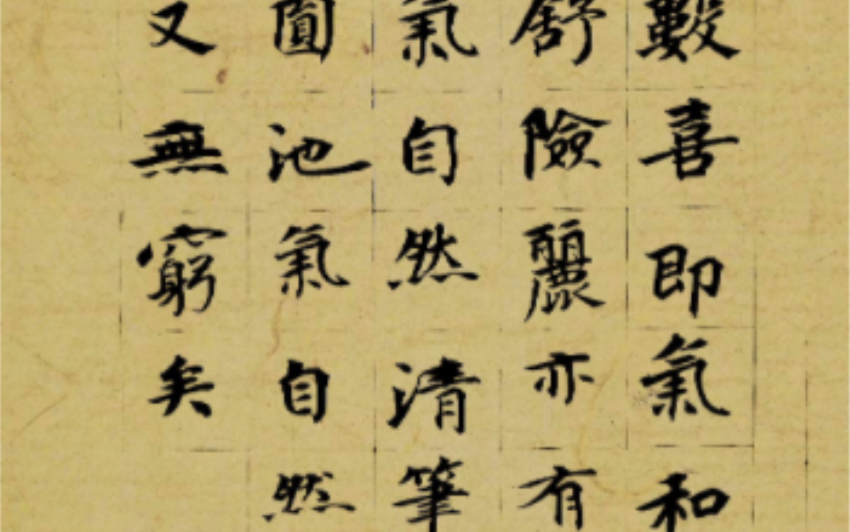 數喜即氣和
舒險麗亦有
氣自然清筆
園池氣自然
又無窮矣